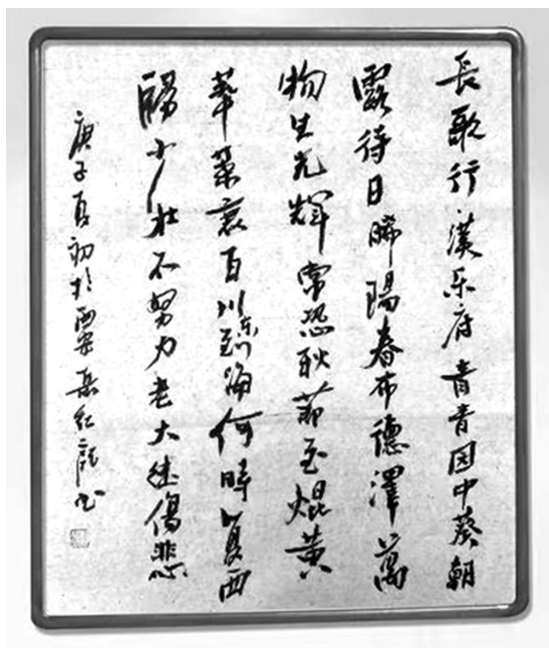 長歌行漢乐府青青园中葵朝
露待日晞陽春布德澤萬
物生光輝常恐秋節至焜黄
華葉衰百川東到海何時復西
歸少壯不努力老大徒傷悲
庚子夏初於西安岳红书